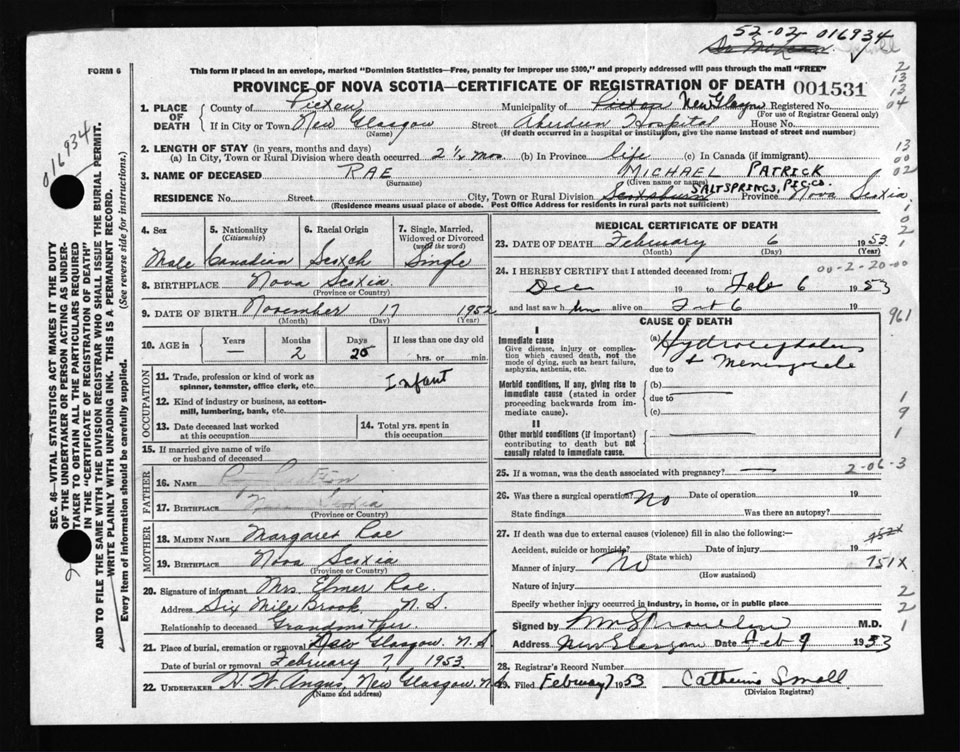 52-02 016934
FORM 6
This form if placed in an envelope, marked "Dominion Statistics—Free, penalty for improper use $300," and properly addressed will pass through the mail "FREE"
PROVINCE OF NOVA SCOTIA—CERTIFICATE OF REGISTRATION OF DEATH 001531
1. PLACE OF DEATH County of Pictou Municipality of Pictou New Glasgow Registered No.
(For use of Registrar General only)
If in City or Town New Glasgow Street Aberdeen Hospital House No.
(Name) (If death occurred in a hospital or institution, give the name instead of street and number)
2. LENGTH OF STAY (in years, months and days)
(a) In City, Town or Rural Division where death occurred 2 ½ mos (b) In Province life (c) In Canada (if immigrant)
3. NAME OF DECEASED RAE MICHAEL PATRICK
(Surname) (Given name or names)
RESIDENCE No. Street City, Town or Rural Division Scotsburn SALTSPRINGS, PIC.CO. Province Nova Scotia
(Residence means usual place of abode. Post Office Address for residents in rural parts not sufficient)
4. Sex 5. Nationality (Citizenship) 6. Racial Origin 7. Single, Married, Widowed or Divorced (write the word)
Male Canadian Scotch Single
8. BIRTHPLACE Nova Scotia
(Province or Country)
9. DATE OF BIRTH November 17 1952
(Month) (Day) (Year)
10. AGE in Years Months Days If less than one day old
— 2 20 hrs. or min.
OCCUPATION
11. Trade, profession or kind of work as spinner, teamster, office clerk, etc. Infant
12. Kind of industry or business, as cotton-mill, lumbering, bank, etc.
13. Date deceased last worked at this occupation
14. Total yrs. spent in this occupation
15. If married give name of wife or husband of deceased
FATHER
16. NAME
17. BIRTHPLACE Nova Scotia
(Province or Country)
MOTHER
18. MAIDEN NAME Margaret Rae
19. BIRTHPLACE Nova Scotia
(Province or Country)
20. Signature of informant Mrs. Elmer Rae
Address Six Mile Brook, N.S.
Relationship to deceased Grandmother.
21. Place of burial, cremation or removal New Glasgow N.S
Date of burial or removal February 7, 1953.
22. UNDERTAKER H. W. Angus, New Glasgow. N.S
(Name and address)
MEDICAL CERTIFICATE OF DEATH
23. DATE OF DEATH February 6 1953
(Month) (Day) (Year)
24. I HEREBY CERTIFY that I attended deceased from: 00-2-20-00
Dec 19 to Feb 6 1953
and last saw him alive on Feb 6 19
CAUSE OF DEATH
I
Immediate cause
Give disease, injury or complication which caused death, not the mode of dying, such as heart failure, asphyxia, asthenia, etc.
(a) Hydrocephalus + Meningocele
due to
Morbid conditions, if any, giving rise to immediate cause (stated in order proceeding backwards from immediate cause).
(b)
due to
(c)
II
Other morbid conditions (if important) contributing to death but not causally related to immediate cause.
25. If a woman, was the death associated with pregnancy? — 2-06-3
26. Was there a surgical operation? No Date of operation 19
State findings Was there an autopsy?
27. If death was due to external causes (violence) fill in also the following:—
Accident, suicide or homicide? Date of injury 19
(State which)
Manner of injury No 751X
(How sustained)
Nature of injury
Specify whether injury occurred in industry, in home, or in public place
Signed by M.D.
Address New Glasgow Date Feb 9 1953
28. Registrar's Record Number
29. Filed February 7 1953 Catherine Small
(Division Registrar)
SEC. 46—VITAL STATISTICS ACT MAKES IT THE DUTY
OF THE UNDERTAKER OR PERSON ACTING AS UNDER-
TAKER TO OBTAIN ALL THE PARTICULARS REQUIRED
IN THE "CERTIFICATE OF REGISTRATION OF DEATH"
AND TO FILE THE SAME WITH THE DIVISION REGISTRAR WHO SHALL ISSUE THE BURIAL PERMIT.
WRITE PLAINLY WITH UNFADING INK. THIS IS A PERMANENT RECORD.
Every item of information should be carefully supplied. (See reverse side for instructions.)
016934
2
13
13
04
13
00
02
1
0
2
1
961
1
9
1
2
2
1